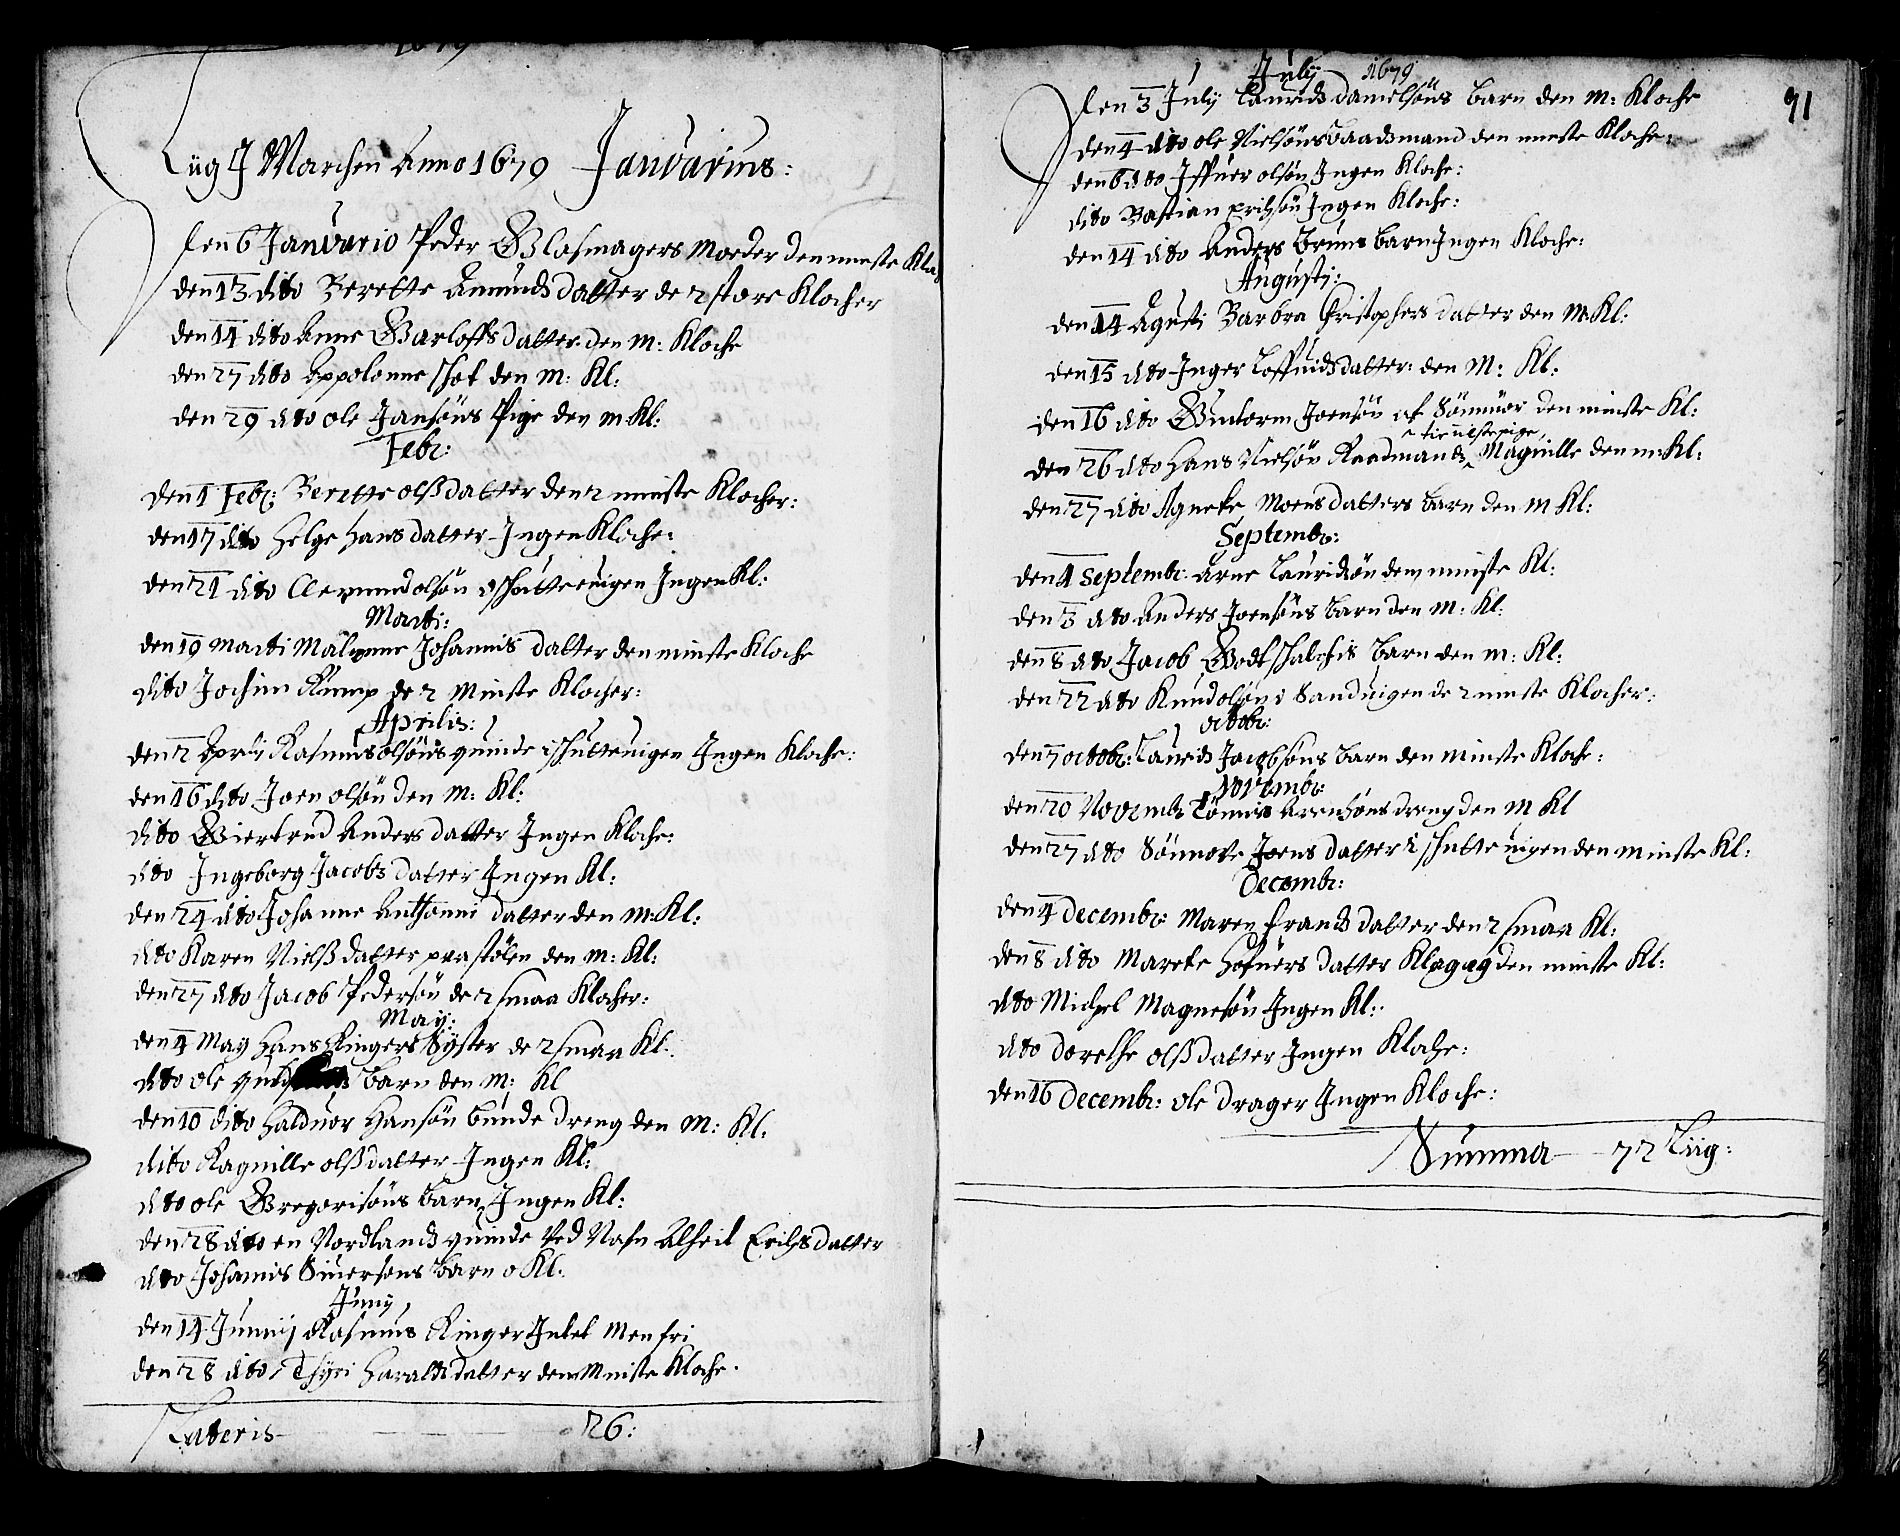 1679
Liig J Marchen Anno 1679 Januarius:
den 6 Januario Peder Glasmagers Moeder den minste Klo
den 13 dito Berette Amunds datter de 2 store Klocher
den 14 dito Anne Garloffs datter den m: Kloche
den 27 dito Appolonne den m: Kl:
den 29 dito ole Jansöns Pige den m Kl:
Febr:
den 1 Febr: Berette olß datter den 2 minste Klocher:
den 17 dito Helge Hans datter Ingen Kloche:
den 21 dito olsön Ingen Kl:
Marti:
den 19 Marti Malenne Johannis datter den minste Kloche
dito Jochim Kump de 2 Minste Klocher:
Aprilis:
den 2 Aprilis Rasmus olsöns quinde i schutteuigen Ingen Kloche:
den 16 dito Joen olsön den m: Kl:
dito Giertrud Anders datter Ingen Kloche:
dito Ingeborg Jacobs datter Ingen Kl:
den 24 dito Johanne Anthonni datter den m: Kl:
dito Karen Nielß datter den m: Kl:
den 27 dito Jacob Pedersön de 2 smaa Klocher:
May:
den 4 May Hans Ringers Syster de 2 smaa Kl:
dito ole barn den m: Kl
den 10 dito Halduor Hansön bunde dreng den m: Kl:
dito Ragnille olß datter Ingen Kl:
dito ole Gregorisöns barn Ingen Kl:
den 28 dito en Nordlands quinde Ved Nafn Alheit Erichs datter
dito Johannis Siuersöns barn o Kl:
Juny
den 14 Junnij Rasmus Ringer Intet Men fri
den 28 dito Thyri Haralds datter den Minste Kloche.
Lateris 26:
91
July 1679
den 3 July Laurids danielsöns barn den m: Kloche
den 4 dito ole Nielsöns baadsmand den minste Kloche:
den 6 dito Iffuer olsön Ingen Kloche:
dito Bastian Erichsön Ingen Kloche:
den 14 dito Anders bruns barn Ingen Kloche:
Augusti:
den 14 Agusti Barbra Cristophers datter den M: Kl:
den 15 dito Inger datter: den M: Kl:
den 16 dito Guttorm Joensön af Sönmör den minste Kl:
tienistepige
den 26 dito Hans Nielsön Raadmands Magnille den m: Kl:
den 27 dito Agnete Moens datters barn den M Kl:
Septembr:
den 4 Septembr: Arne Lauridsön den minste Kl:
den 5 dito Anders Joensöns barn den m: Kl:
den 8 dito Jacob Godtschalchis barn den m: Kl:
den 22 dito Knud olsön i Sanduigen de 2 minste Klocher:
octobr:
den 7 octobr: Laurids Jacobsöns barn den minste Kloche:
Novembr:
den 20 Novembr Tönnis Arensöns dreng den M Kl
den 27 dito Sönnove Joens datter i schutteuigen den minste Kl:
Decembr:
den 4 Decembr: Maren frands datter den 2 smaa Kl:
den 8 dito Marete datter den minste Kl:
dito Michel Magnesön Ingen Kl:
dito Dorethe olß datter Ingen Kloche:
den 16 Decembr: ole Drager Ingen Kloche:
Summa 72 Liig: